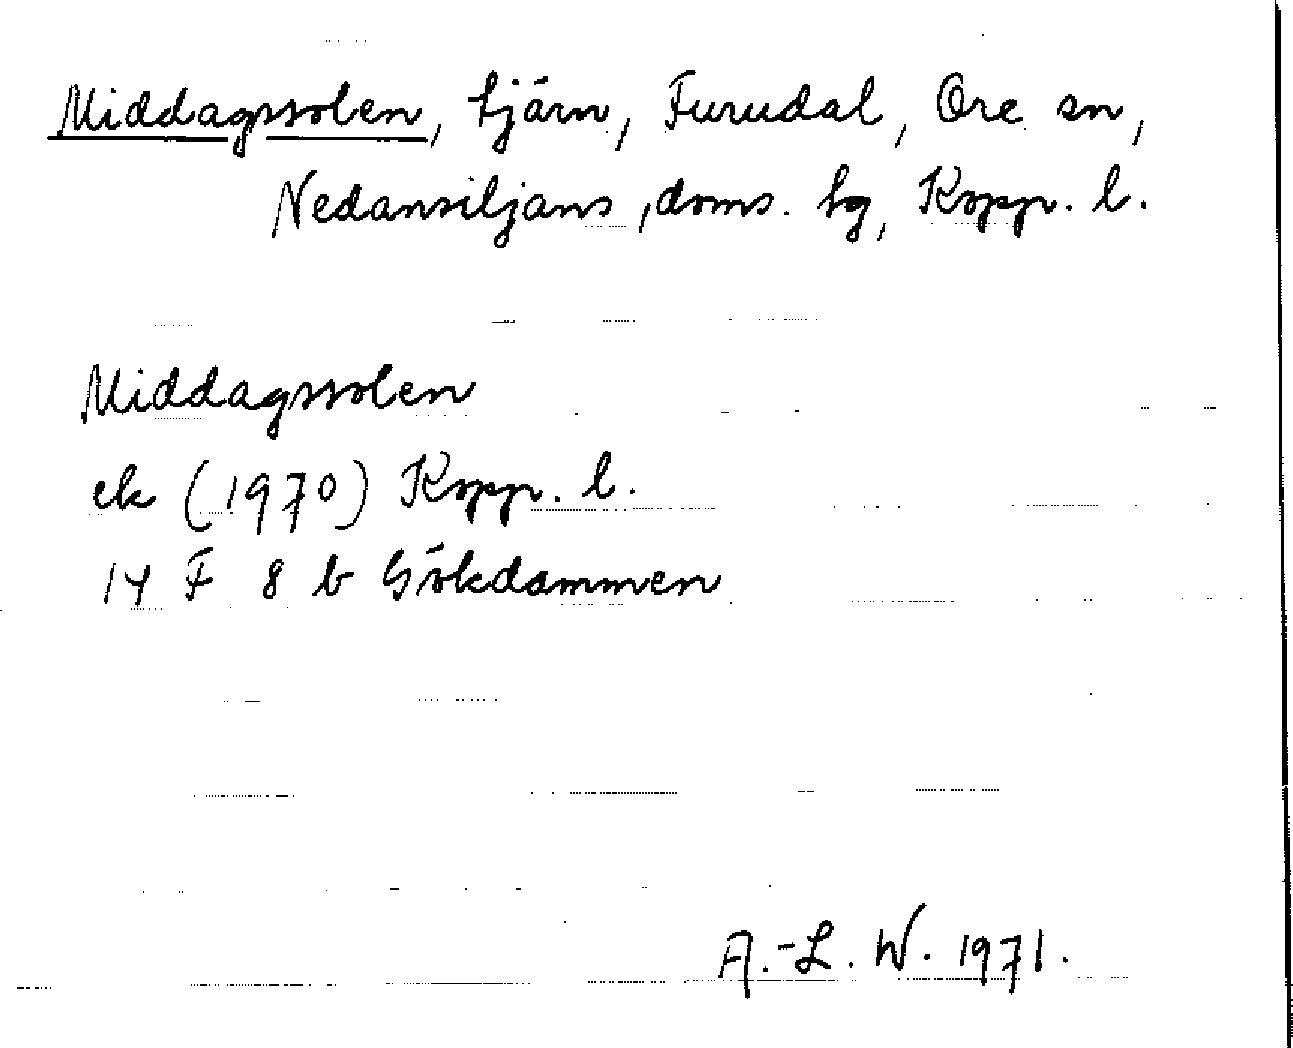 Middagssolen, tjärn, Furudal, Ore sn,
Nedansiljans, doms. tg, Kopp. l.
Middagssolen
ek (1970) Kopp. l.
14 F 8 b Gökdammen
A.-L. W. 1971.